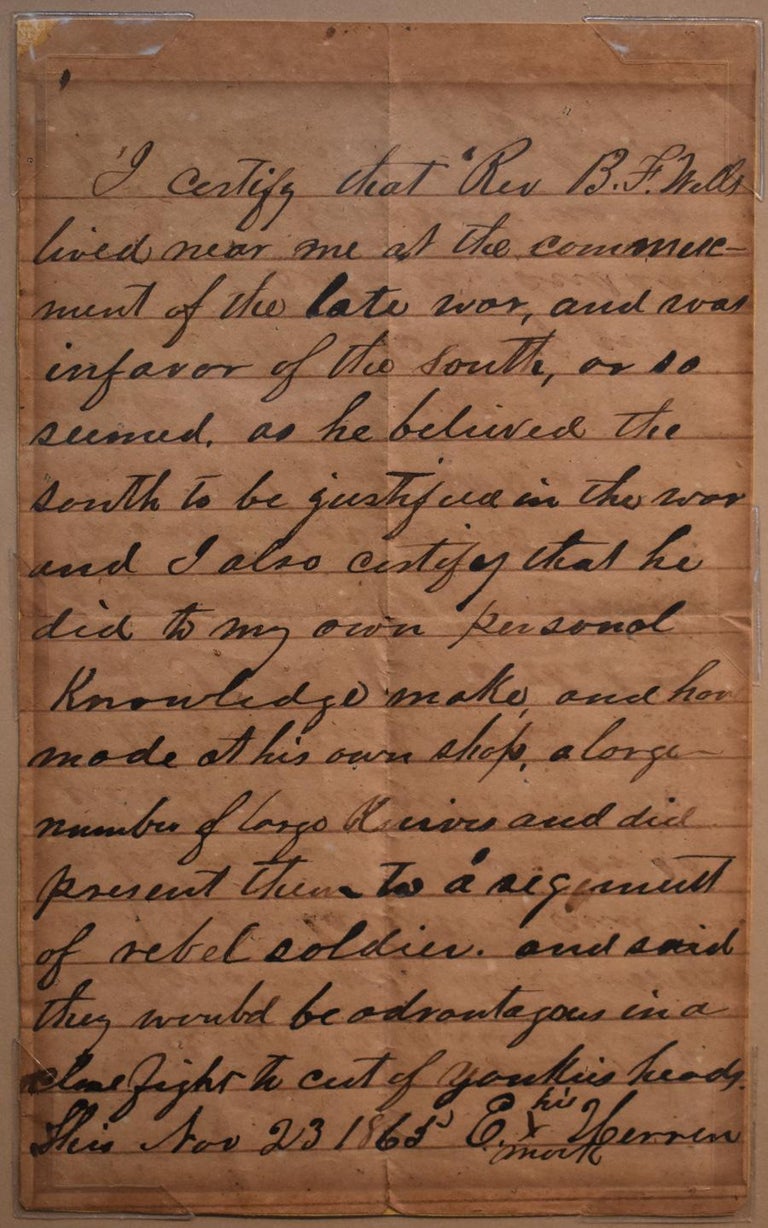 I certify that Rev B. F. Wells
lived near me at the commenc-
ment of the late war, and was
infavor of the South, or so
seemed, as he believed the
south to be justified in the war
and I also certify that he
did to my own personal
Knowledge make, and hav
made at his own shop, a large
number of large Knives and did
present them to a regiment
of rebel soldier. and said
they would be advantagous in a
close fight to cut of yankies heads.
This Nov 23 1865 E. his x mark Herren